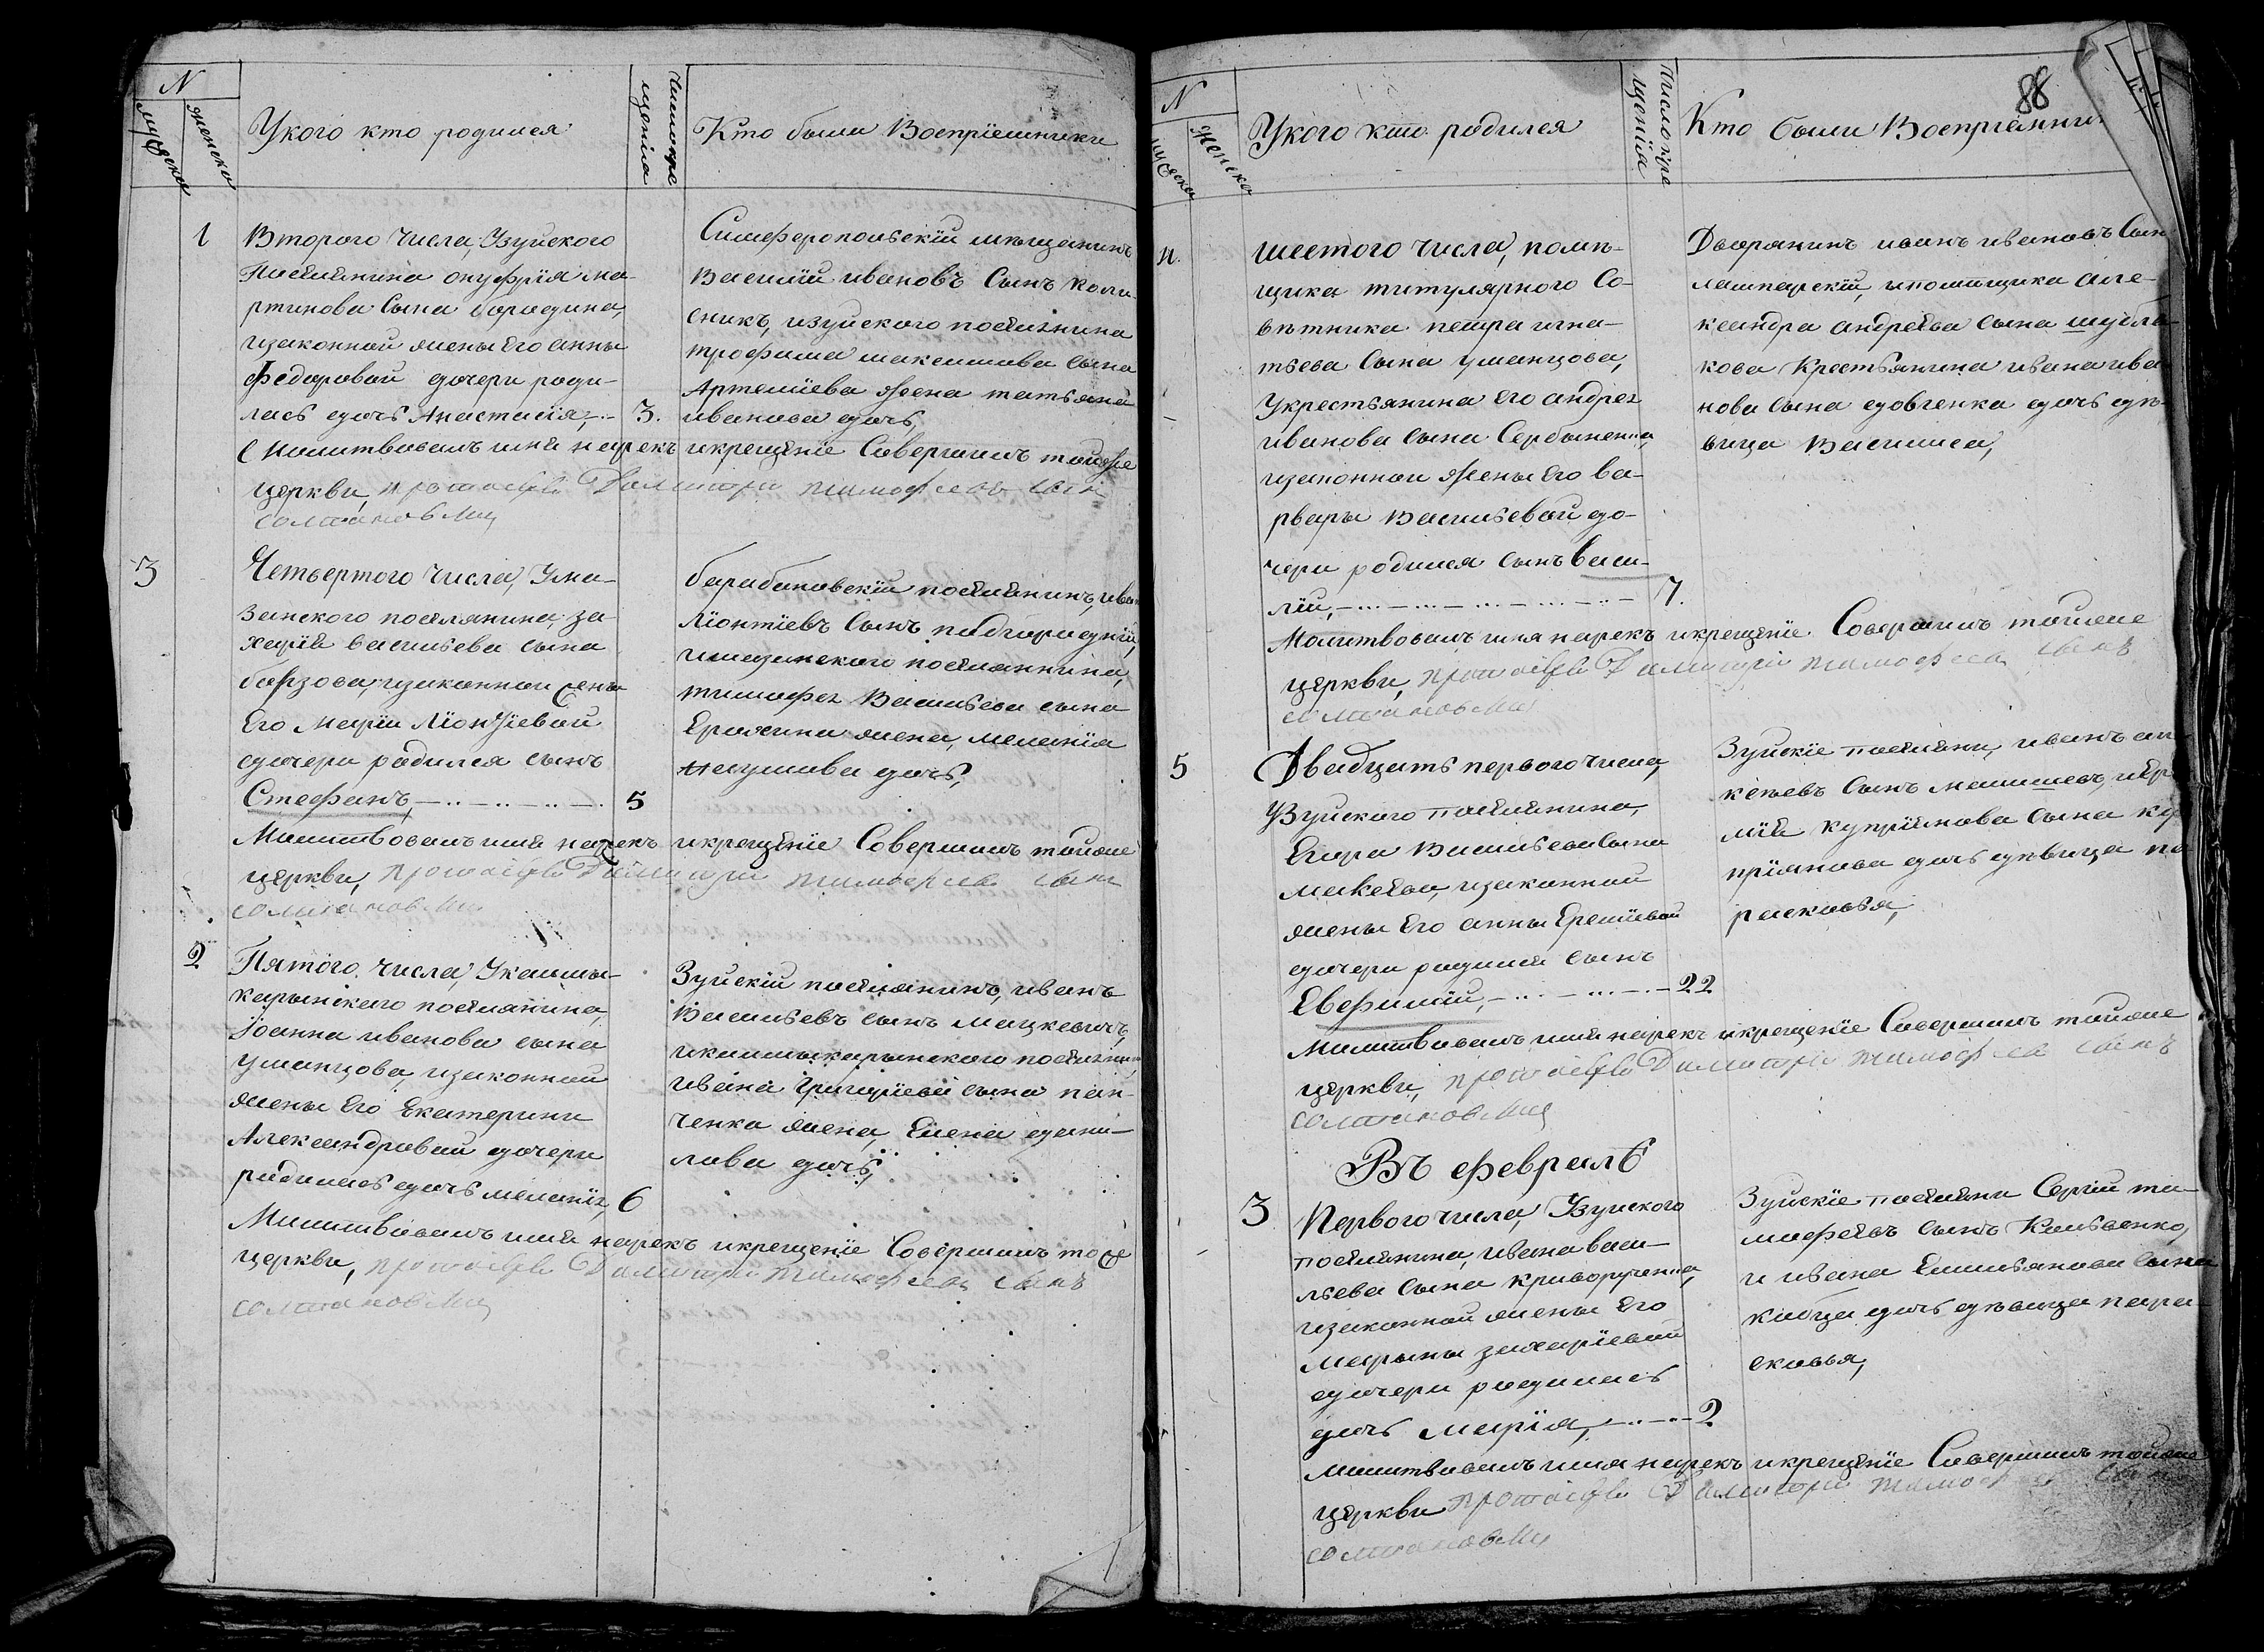 N
мужеска
женска
У кого кто родился
Число кре
щенїя
Кто были Восприємники
1
Второго числа, Узуйского
Поселянина онуфрїя ма-
ртинова Сына бородина,
изаконной жены Его анны
Федоровой дочери роди-
лась дочь Анастасїя, 3.
Симферопольскїй мещанинъ
Василїй ивановъ Сынъ коле-
сникъ, изуйского поселянина
трофима максимова сына
Артемїева жена татьяна
иванова дочь,
Молитвовалъ имя нарекъ икрещенїе Совершилъ тойже
церкви, протоїерей Димитрїй тимофеевъ сынъ
3
Четвертого числа, Ума-
занского поселянина, за-
харїя васильева сына
борзова, изаконной жены
Его марїи Лїонтїевой
дочери родился сынъ
Стефанъ, 5
барабановскїй поселянинъ, иванъ
Лїонтїевъ Сынъ подгородній,
имазанского поселянина,
тимофея Васильева сына
Ерохина жена, меланїя
наумова дочь,
Молитвовалъ имя нарекъ икрещенїе Совершилъ тойже
церкви, протоїерей Димитрїй тимофеевъ сынъ
2
Пятого числа, Укаммы-
карынского поселянина,
Іоанна иванова сына
уманцова, изаконной
жены Его Екатерины
Александровой дочери
родилась дочь меланїя, 6
Зуйскїй поселянинъ, иванъ
Васильевъ сынъ мацкевичъ,
икаммыкарынского поселянина,
ивана Григорїева сына пан-
ченка жена, Елена дани-
лова дочь,
Молитвовалъ имя нарекъ икрещенїе Совершилъ тоже
церкви, протоїерей Димитрїй тимофеевъ сынъ
88
N
мужеска
Женска
У кого кто родился
Число кре
щенїя
Кто были Восприємники
4.
шестого числа, помѣ-
щика титулярного Со-
вѣтника петра игна-
тьева Сына уманцова,
Укрестьянина Его андрея
иванова сына Сербиненка,
изаконной жены Его ва-
рвары Васильевой до-
чери родился сынъ Васи-
лїй, 7.
Дворянинъ иванъ ивановъ Сынъ
лашкарскїй, ипомѣщика але-
ксандра андреева сына шубла-
кова Крестьянина ивана ива
нова сына довгенка дочь дѣ-
вица Василиса,
Молитвовалъ имя нарекъ икрещенїе Совершилъ тойже
церкви, протоїерей Димитрїй тимофеевъ сынъ
5
Двадцать первого числа,
Узуйского поселянина,
Егора Васильева Сына
макеева, изаконной
жены Его анны Еремїевой
дочери родился сынъ
Евфимїй, 22
Зуйскїе поселяне, иванъ
сынъ
мїя купрїянова сына ку
прїянова дочь дѣвица па
расковья,
Молитвовалъ имя нарекъ икрещенїе Совершилъ тойже
церкви, протоїерей Димитрїй тимофеевъ сынъ
Въ февралѣ
3
Первого числа, Узуйского
поселянина, ивана васи-
льева Сына криворученка,
изаконной жены Его
марыны захарїевой
дочери родилась
дочь марїя, 2
Зуйскїе поселяне Сергїй ти-
мофеевъ сынъ Ковтвенко,
и ивана Емельянова сына
кобца дочь дѣвица пара-
сковья,
Молитвовалъ имя нарекъ икрещенїе Совершилъ тойже
церкви протоїерей Димитрїй тимофеевъ сынъ